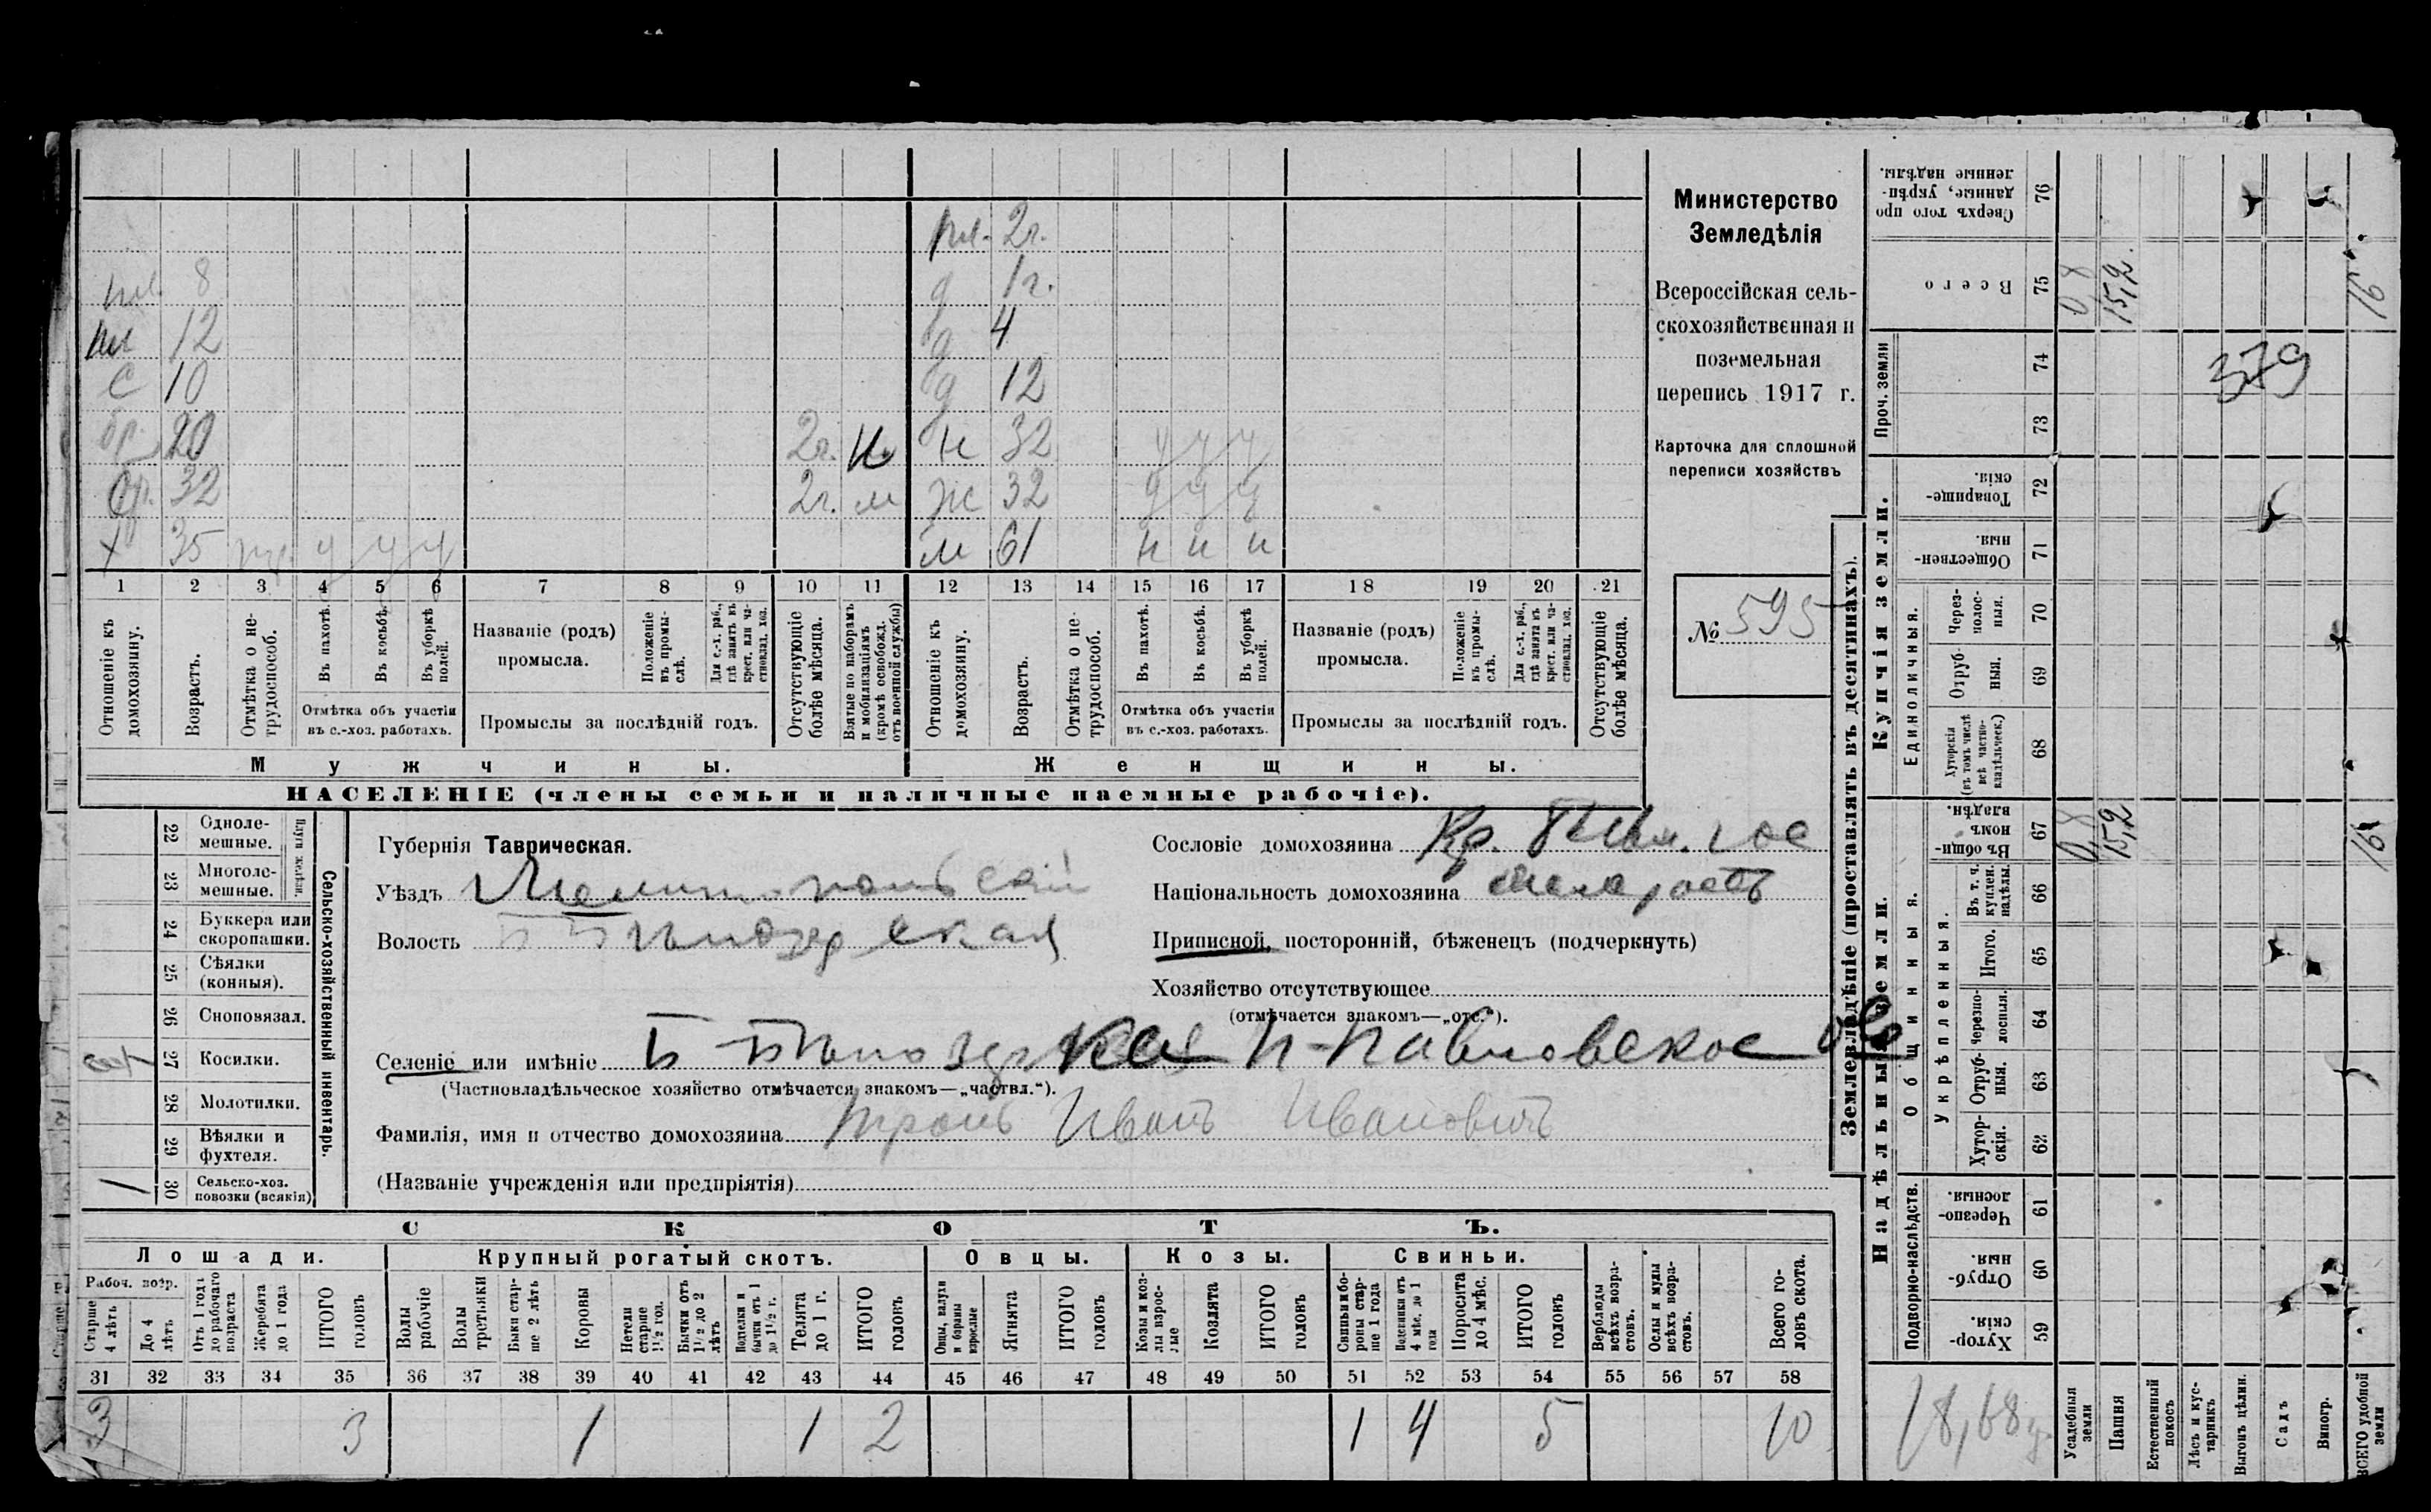 пл. 2г.
пл. 8 д 1г.
пл 12 д 4
с 10 д 12
бр. 20 2г. н 32 у у у
бр. 32 2г. м ж 32 у у у
х 35 у у у м 61 н н н
1 2 3 4 5 6 7 8 9 10 11 12 13 14 15 16 17 18 19 20 21
Отношеніе къ домохозяину.
Возрастъ.
Отмѣтка о не-трудоспособ.
Въ пахотѣ.
Въ косьбѣ.
Въ уборкѣ полей.
Отмѣтка объ участіи
въ с.-хоз. работахъ.
Названіе (родъ)
промысла.
Положеніе въ промы-слѣ.
Для с.-х. раб., гдѣ занятъ въ крест. или ча-стновлад. хоз.
Промыслы за послѣдній годъ.
Отсутствующіе болѣе мѣсяца.
Взятые по наборамъ и мобилизаціямъ (кромѣ освобожд. отъ военной службы)
Отношеніе къ домохозяину.
Возрастъ.
Отмѣтка о не-трудоспособ.
Въ пахотѣ.
Въ косьбѣ.
Въ уборкѣ полей.
Отмѣтка объ участіи
въ с.-хоз. работахъ.
Названіе (родъ)
промысла.
Положеніе въ промы-слѣ.
Для с.-х. раб., гдѣ занята въ крест. или ча-стновлад. хоз.
Промыслы за послѣдній годъ.
Отсутствующіе болѣе мѣсяца.
Мужчины.
Женщины.
НАСЕЛЕНІЕ (члены семьи и наличные наемные рабочіе).
Министерство
Земледѣлія
Всероссійская сель-
скохозяйственная и
поземельная
перепись 1917 г.
Карточка для сплошной
переписи хозяйствъ
№ 595
Сельско-хозяйственный инвентарь.
22 Одноле-мешные.
23 Многоле-мешные.
24 Буккера или скоропашки.
25 Сѣялки (конныя).
26 Сноповязал.
27 Косилки.
28 Молотилки.
29 Вѣялки и фухтеля.
30 Сельско-хоз. повозки (всякія) 1
Губернія Таврическая.
Уѣздъ Мелитопольскій
Волость Б Бѣлозерская
Селеніе или имѣніе Б Бѣлозерка П-Павловское
(Частновладѣльческое хозяйство отмѣчается знакомъ—„частвл.“).
Фамилія, имя и отчество домохозяина Иванъ Ивановичъ
(Названіе учрежденія или предпріятія)
Сословіе домохозяина Кр.
Національность домохозяина малороссъ
Приписной, посторонній, бѣженецъ (подчеркнуть)
Хозяйство отсутствующее
(отмѣчается знакомъ—„отс.“).
СКОТЪ.
Лошади. Крупный рогатый скотъ. Овцы. Козы. Свиньи.
Рабоч. возр.
Старше 4 лѣтъ
До 4 лѣтъ
Отъ 1 года до рабочаго возраста
Жеребята до 1 года
ИТОГО головъ
Волы рабочіе
Волы третьяки
Быки стар-ше 2 лѣтъ
Коровы
Нетели старше 1½ год.
Бычки отъ 1½ до 2 лѣтъ
Телки и бычки отъ 1 до 1½ г.
Телята до 1 г.
ИТОГО головъ
Овцы, валухи и бараны взрослые
Ягнята
ИТОГО головъ
Козы и коз-лы взрос-лые
Козлята
ИТОГО головъ
Свиньи и бо-ровы стар-ше 1 года
Подсвинки отъ 4 мѣс. до 1 года
Поросята до 4 мѣс.
ИТОГО головъ
Верблюды всѣхъ возра-стовъ.
Ослы и мулы всѣхъ возра-стовъ.
Всего го-ловъ скота.
31 32 33 34 35 36 37 38 39 40 41 42 43 44 45 46 47 48 49 50 51 52 53 54 55 56 57 58
3 3 1 1 2 1 4 5 10
Землевладѣніе (проставлять въ десятинахъ).
Надѣльныя земли.
Купчія земли.
Проч. земли
Общинныя.
Укрѣпленныя.
Единоличныя.
Подворно-наслѣдств.
Сверхъ того про данные, укрѣп-ленные надѣлы. 76
Всего 75 0,8 15,2. 16
74
73
379
Товарище-скія. 72
Обществен-ныя. 71
Через-полос-ныя. 70
Отруб-ныя. 69
Хуторскія (въ томъ числѣ всѣ частно-владѣльческ.) 68
Въ общин-номъ владѣн. 67 0,8 15,2 16
Въ т. ч. куплен. надѣлы. 66
Итого. 65
Черезпо-лосныя. 64
Отруб-ныя. 63
Хутор-скія. 62
Черезпо-лосныя. 61
Отруб-ныя. 60
Хутор-скія. 59
18,68
Усадебныя земли
Пашня
Естественный покосъ
Лѣсъ и кус-тарникъ
Выгонъ цѣлин.
Садъ
Виногр.
ВСЕГО удобной земли